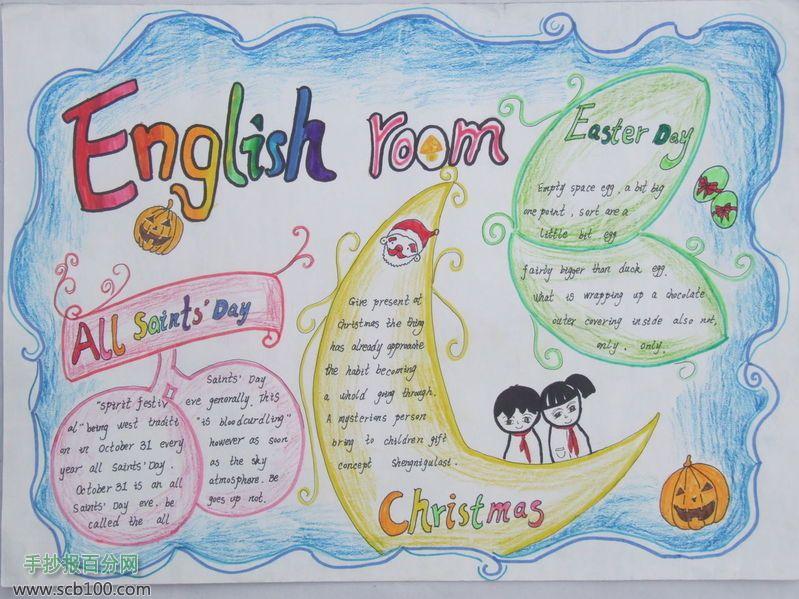 English room
Easter Day
Empty space egg, a bit big
one point, sort are a
little bit egg
fairly bigger than duck egg.
What is wrapping up a chocolate
outer covering instde also not,
only. only.
All Saints' Day
"spirit festiv
al" being west traditi
on in October 31 every
year all Saints' Day.
October 31 is an all
Saints' Day eve. be
called the all
Saints' Day
eve generally. This
"is bloodcurdling"
however as soon
as the sky
atmosphere. Be
goes up not.
Give present at
Christmas the thing
has already approache
the habit becoming
a whold going through.
A mysterions person
bring to children gift
concept Shengnigulast.
Christmas
手抄报百分网
www.scb100.com